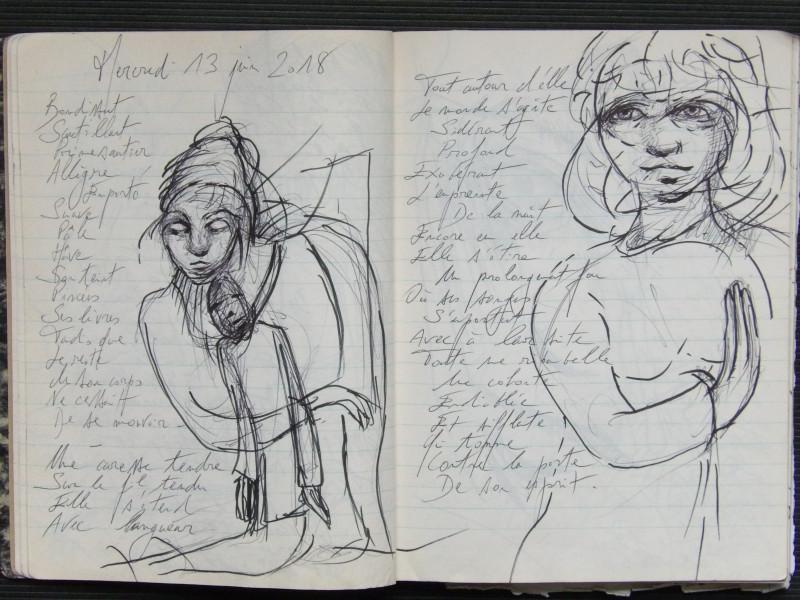 Mercredi 13 juin 2018
Bondissant
Sautillant
Primesautier
Allègre
Emporté
Suave
Pâle
Hâve
Pincées
Ses lèvres
Tandis que
Le reste
de son corps
Ne cessait
De se mouvoir
Une caresse tendre
Sur le fil tendu
Elle s'étend
Avec langueur
Tout autour d'elle
Le monde s'agite
Sidérant
Profond
Exubérant
L'empreinte
De la nuit
Encore en elle
Elle s'étire
Un prolongement
Où ses songes
Avec
Toute une ribambelle
Et sifflote
Contre la porte
De son esprit.